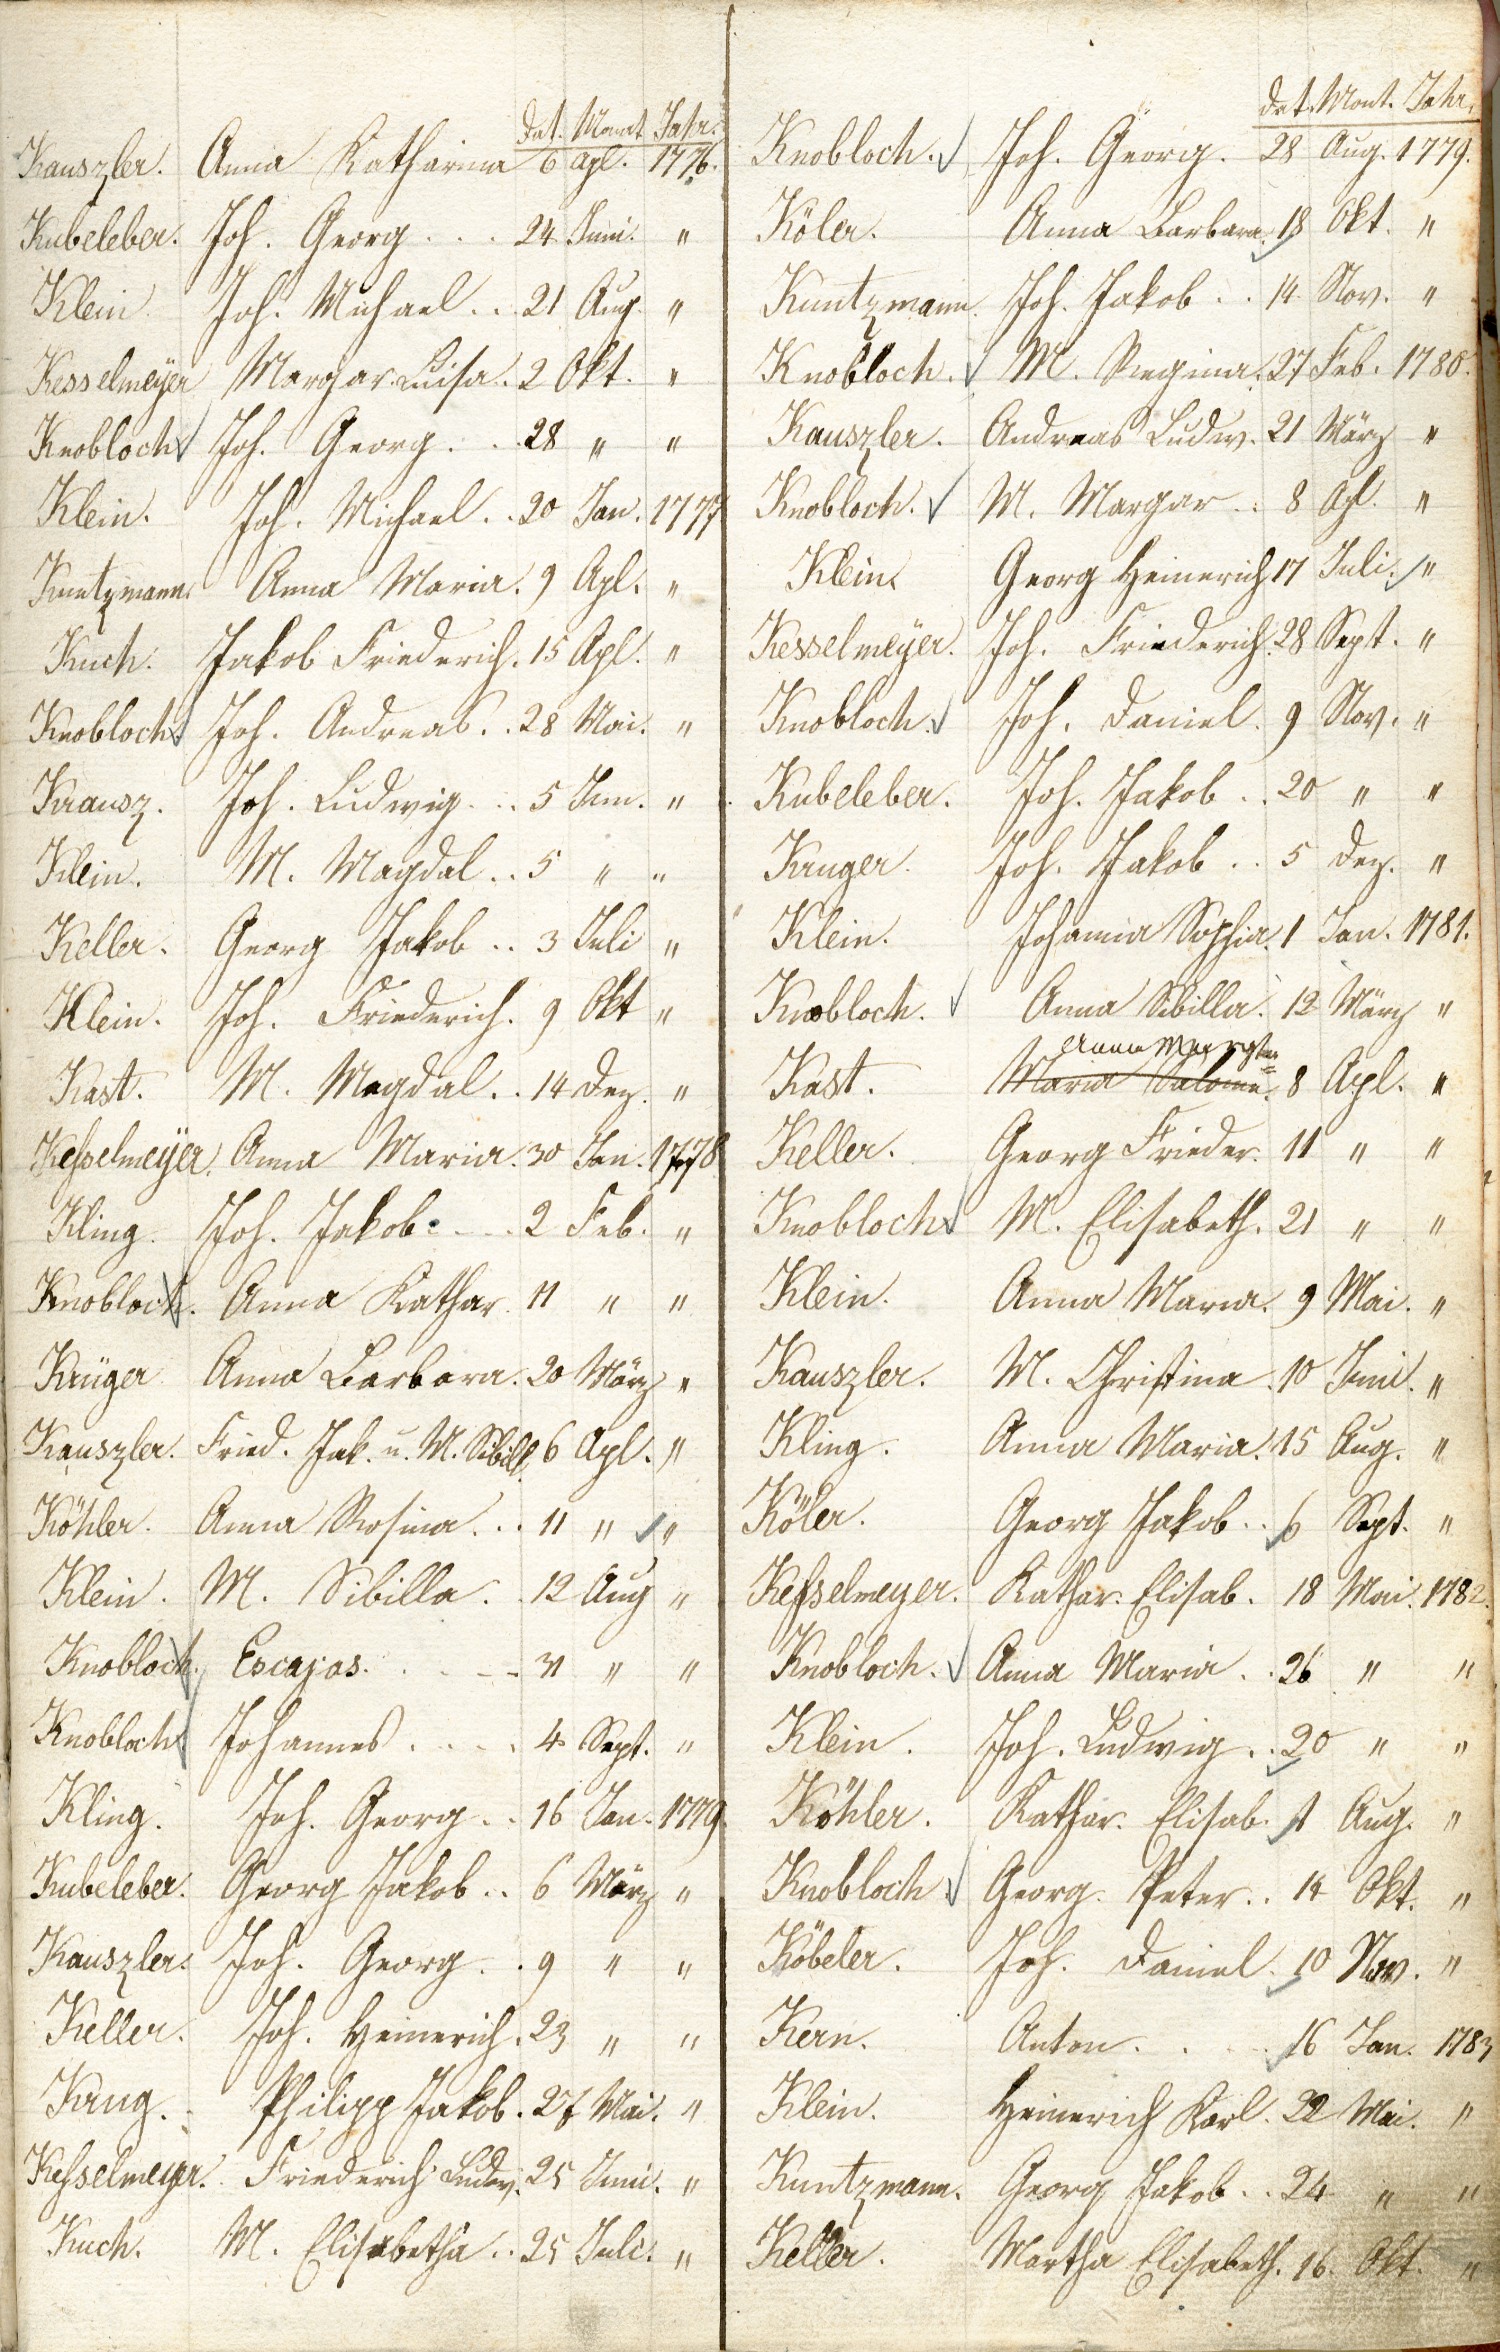 Dat. Monat Jahr.
Kauszler. Anna Katharina 6 Apl. 1776.
Kubeleber. Joh. Georg . . . 24 Juni. "
Klein Joh. Michael . . 21 Aug. "
Kesselmeÿer Margar. Luisa. 2 Okt. "
Knobloch Joh. Georg . . 28 " "
Klein. Joh. Michael . . 20 Jan. 1777
Kuntzmann. Anna Maria. 9 Apl. "
Kuch. Jakob Friederich. 15 Apl. "
Knobloch. Joh. Andreas. . 28 Mai. "
Krausz. Joh. Ludwig . . 5 Jun. "
Klein. M. Magdal . . 5 " "
Keller. Georg Jakob . . 3 Juli "
Klein. Joh. Friederich. 9 Okt "
Kast. M. Magdal . . 14 Dez. "
Keſselmeÿer. Anna Maria. 30 Jan. 1778
Kling. Joh. Jakob. . . . 2 Feb. "
Knobloch. Anna Kathar. 11 " "
Krüger Anna Barbara. 20 März "
Kauszler. Fried. Jak. u. M. Sibill. 6 Apl. "
Köhler. Anna Rosina . . . 11 " "
Klein. M. Sibilla . . 12 Aug "
Knobloch. 31 " "
Knobloch Johannes . . . . 4 Sept. "
Kling. Joh. Georg . . 16 Jan. 1779.
Kubeleber. Georg Jakob . . 6 März "
Kauszler. Joh. Georg . . 9 " "
Keller. Joh. Heinerich. 23 " "
Krug. Philipp Jakob. 27 Mai. "
Keſselmeyer. Friederich Ludw. 25 Juni. "
Kuch. M. Elisabetha . . 25 Juli. "
Dat. Monat. Jahr.
Knobloch. Joh. Georg. 28 Aug. 1779.
Köler. Anna Barbara. 18 Okt. "
Kuntzmann. Joh. Jakob . . 14 Nov. "
Knobloch. M. Regina. 27 Feb. 1780.
Kauszler. Andreas Ludw. 21 März "
Knobloch. M. Margar . . 8 Apl. "
Klein. Georg Heinerich 17 Juli. "
Kesselmeÿer. Joh. Friederich. 28 Sept. "
Knobloch. Joh. Daniel. 9 Nov. "
Kubeleber. Joh. Jakob . . 20 " "
Kruger. Joh. Jakob . . 5 Dez. "
Klein. Johanna Sophia. 1 Jan. 1781.
Knobloch. Anna Sibilla. 12 März "
Anna Margta
Kast. Maria Salome. 8 Apl. "
Keller. Georg Frieder. 11 " "
Knobloch. M. Elisabeth. 21 " "
Klein. Anna Maria. 9 Mai. "
Kauszler. M. Christina. 10 Juni. "
Kling. Anna Maria. 15 Aug. "
Köler. Georg Jakob . . 6 Sept. "
Keſselmeyer. Kathar. Elisab. 18 Mai. 1782.
Knobloch. Anna Maria . . 26 " "
Klein. Joh. Ludwig . . 20 " "
Köhler. Kathar. Elisab. 1 Aug. "
Knobloch. Georg Peter . . 14 Okt. "
Köbeler. Joh. Daniel. 10 Nov. "
Kern. Anton . . . 16 Jan. 1783
Klein. Heinerich Karl. 22 Mai. "
Kuntzmann. Georg Jakob . . 24 " "
Keller. Martha Elisabeth. 16. Okt. "